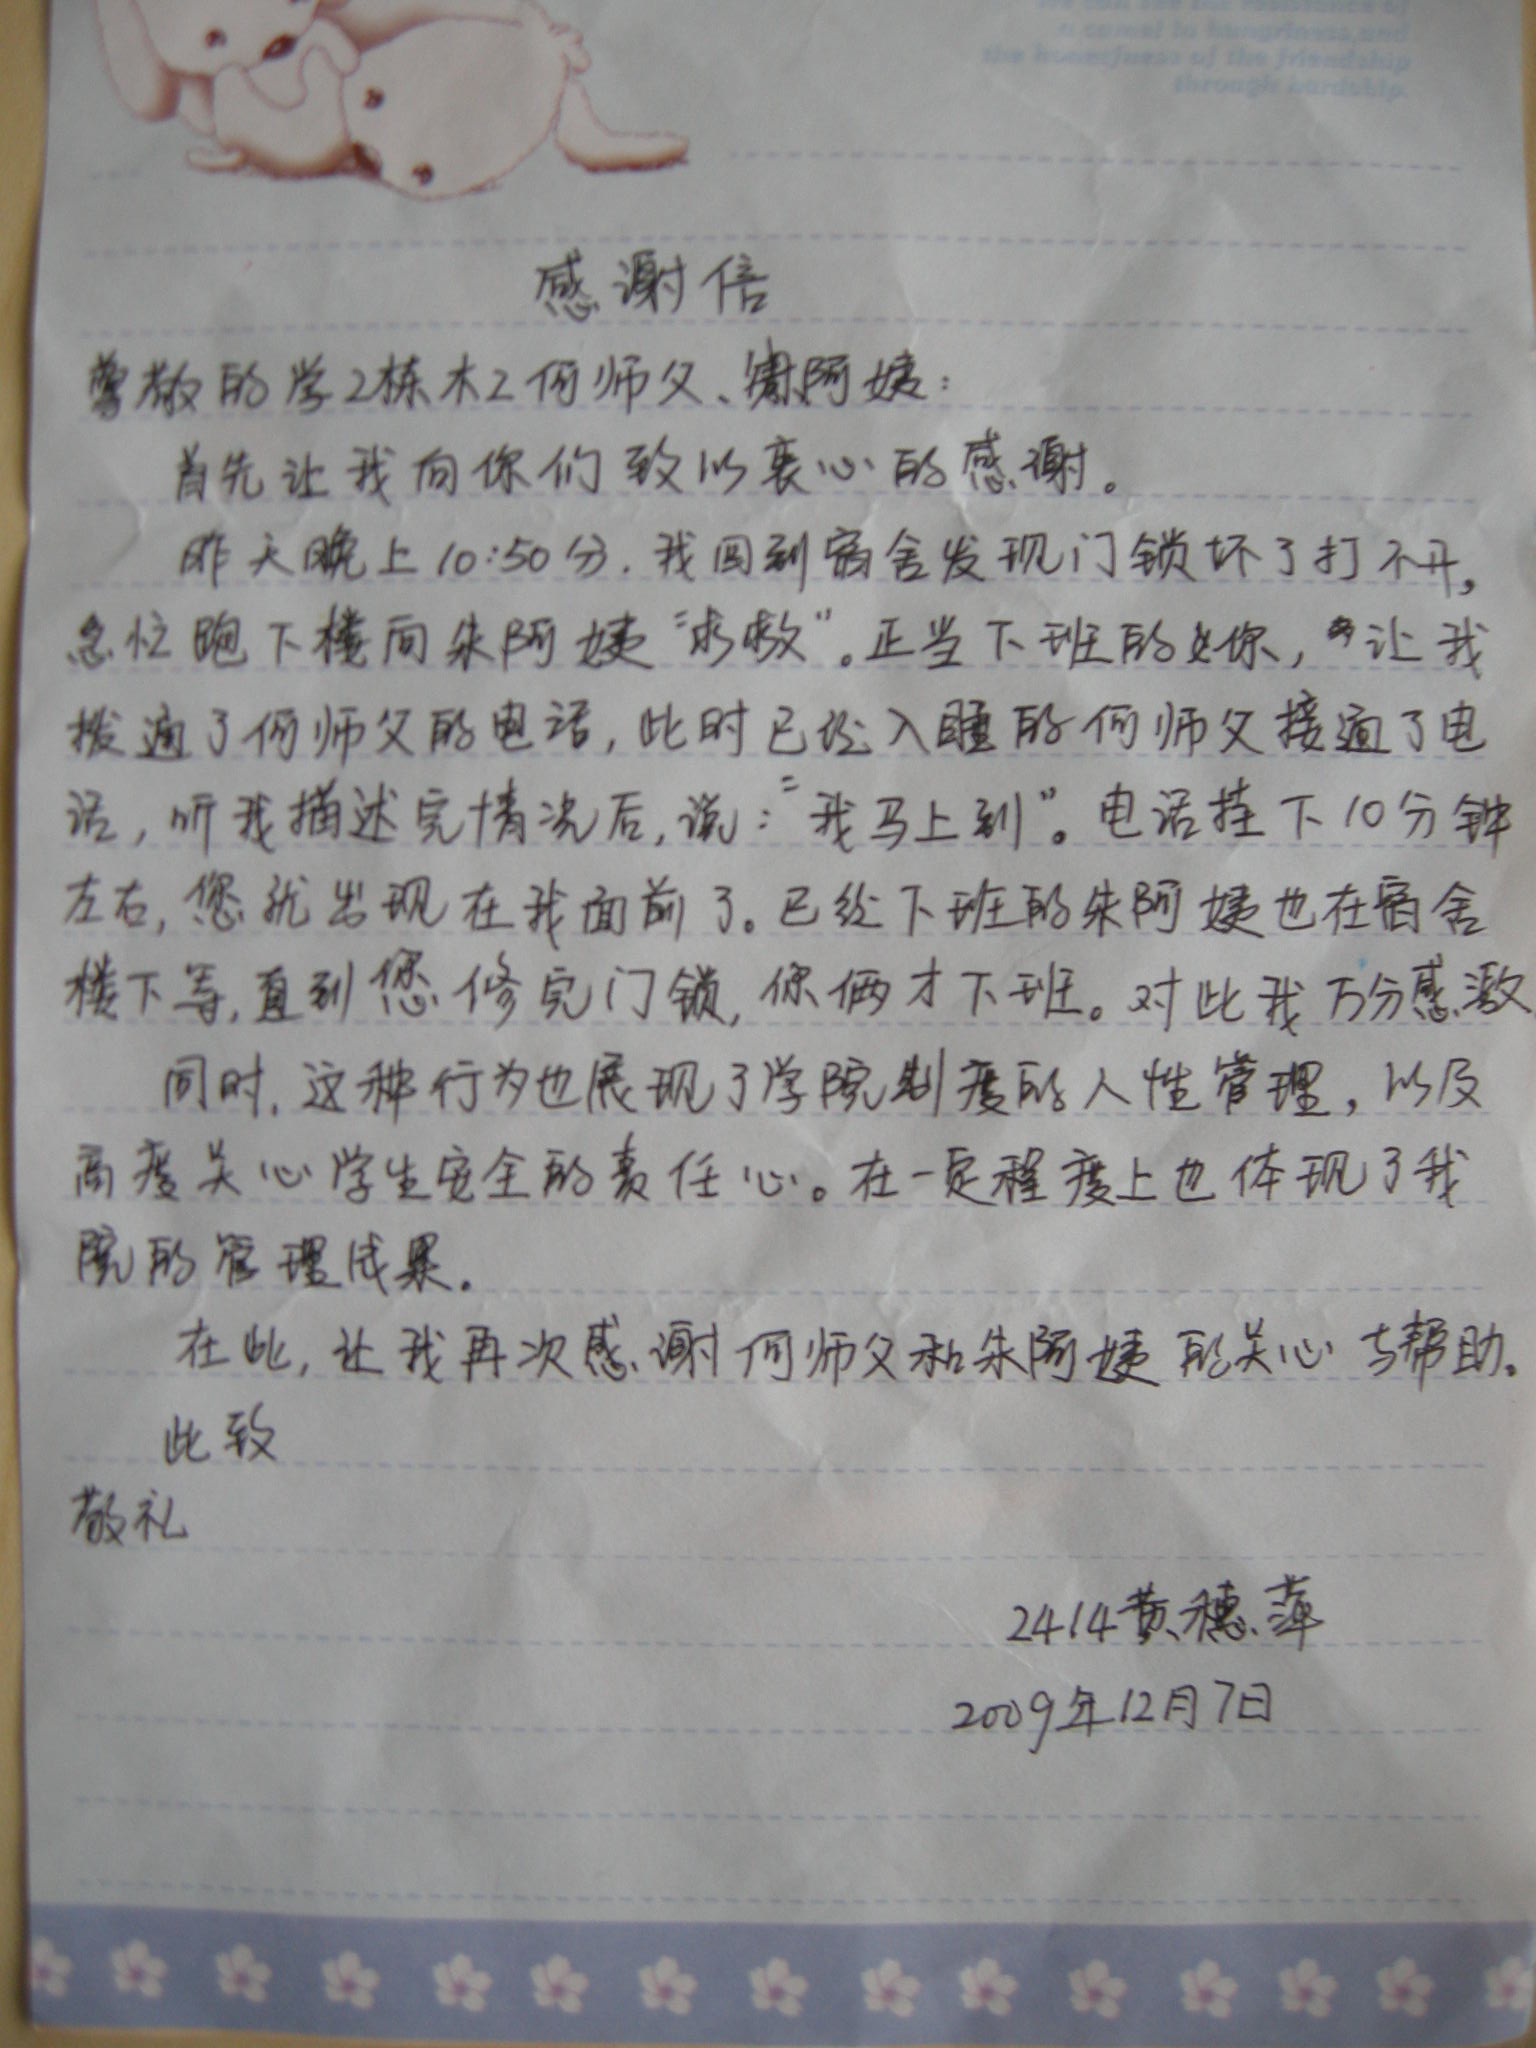 We can see the resistance of
a camel in hungriness, and
the honestness of the friendship
through hardship.
感谢信
尊敬的学2栋木工何师父、朱阿姨：
首先让我向你们致以衷心的感谢。
昨天晚上10:50分，我回到宿舍发现门锁坏了打不开，
急忙跑下楼向朱阿姨“求救”。正当下班的你，让我
拨通了何师父的电话，此时已经入睡的何师父接通了电
话，听我描述完情况后，说：“我马上到”。电话挂下10分钟
左右，您就出现在我面前了。已经下班的朱阿姨也在宿舍
楼下等，直到您修完门锁，你俩才下班。对此我万分感激
同时，这种行为也展现了学院制度的人性管理，以及
高度关心学生安全的责任心。在一定程度上也体现了我
院的管理成果。
在此，让我再次感谢何师父和朱阿姨的关心与帮助。
此致
敬礼
2414黄穗萍
2009年12月7日